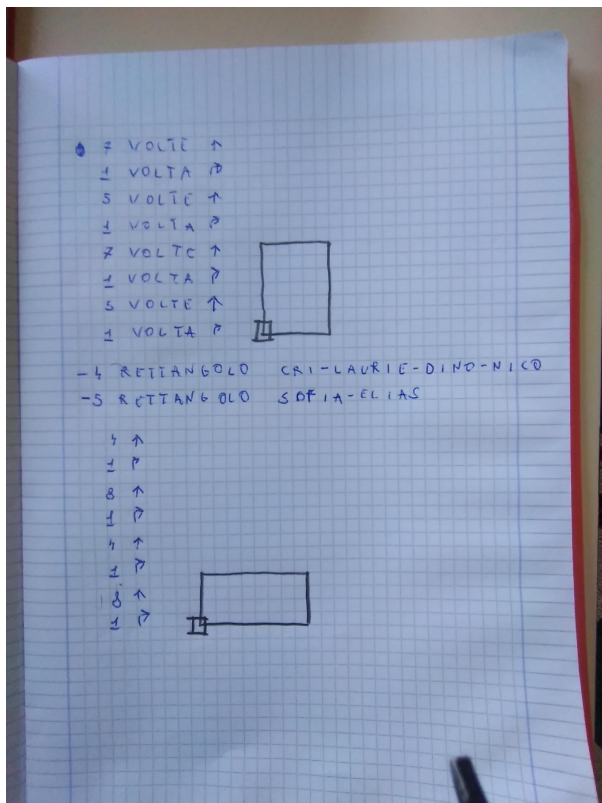 7 VOLTE ↑
1 VOLTA ↱
5 VOLTE ↑
1 VOLTA ↱
7 VOLTE ↑
1 VOLTA ↱
5 VOLTE ↑
1 VOLTA ↱
-4 RETTANGOLO CRI-LAURIE-DINO-NICO
-5 RETTANGOLO SOFIA-ELIAS
4 ↑
1 ↱
8 ↑
1 ↱
4 ↑
1 ↱
8 ↑
1 ↱